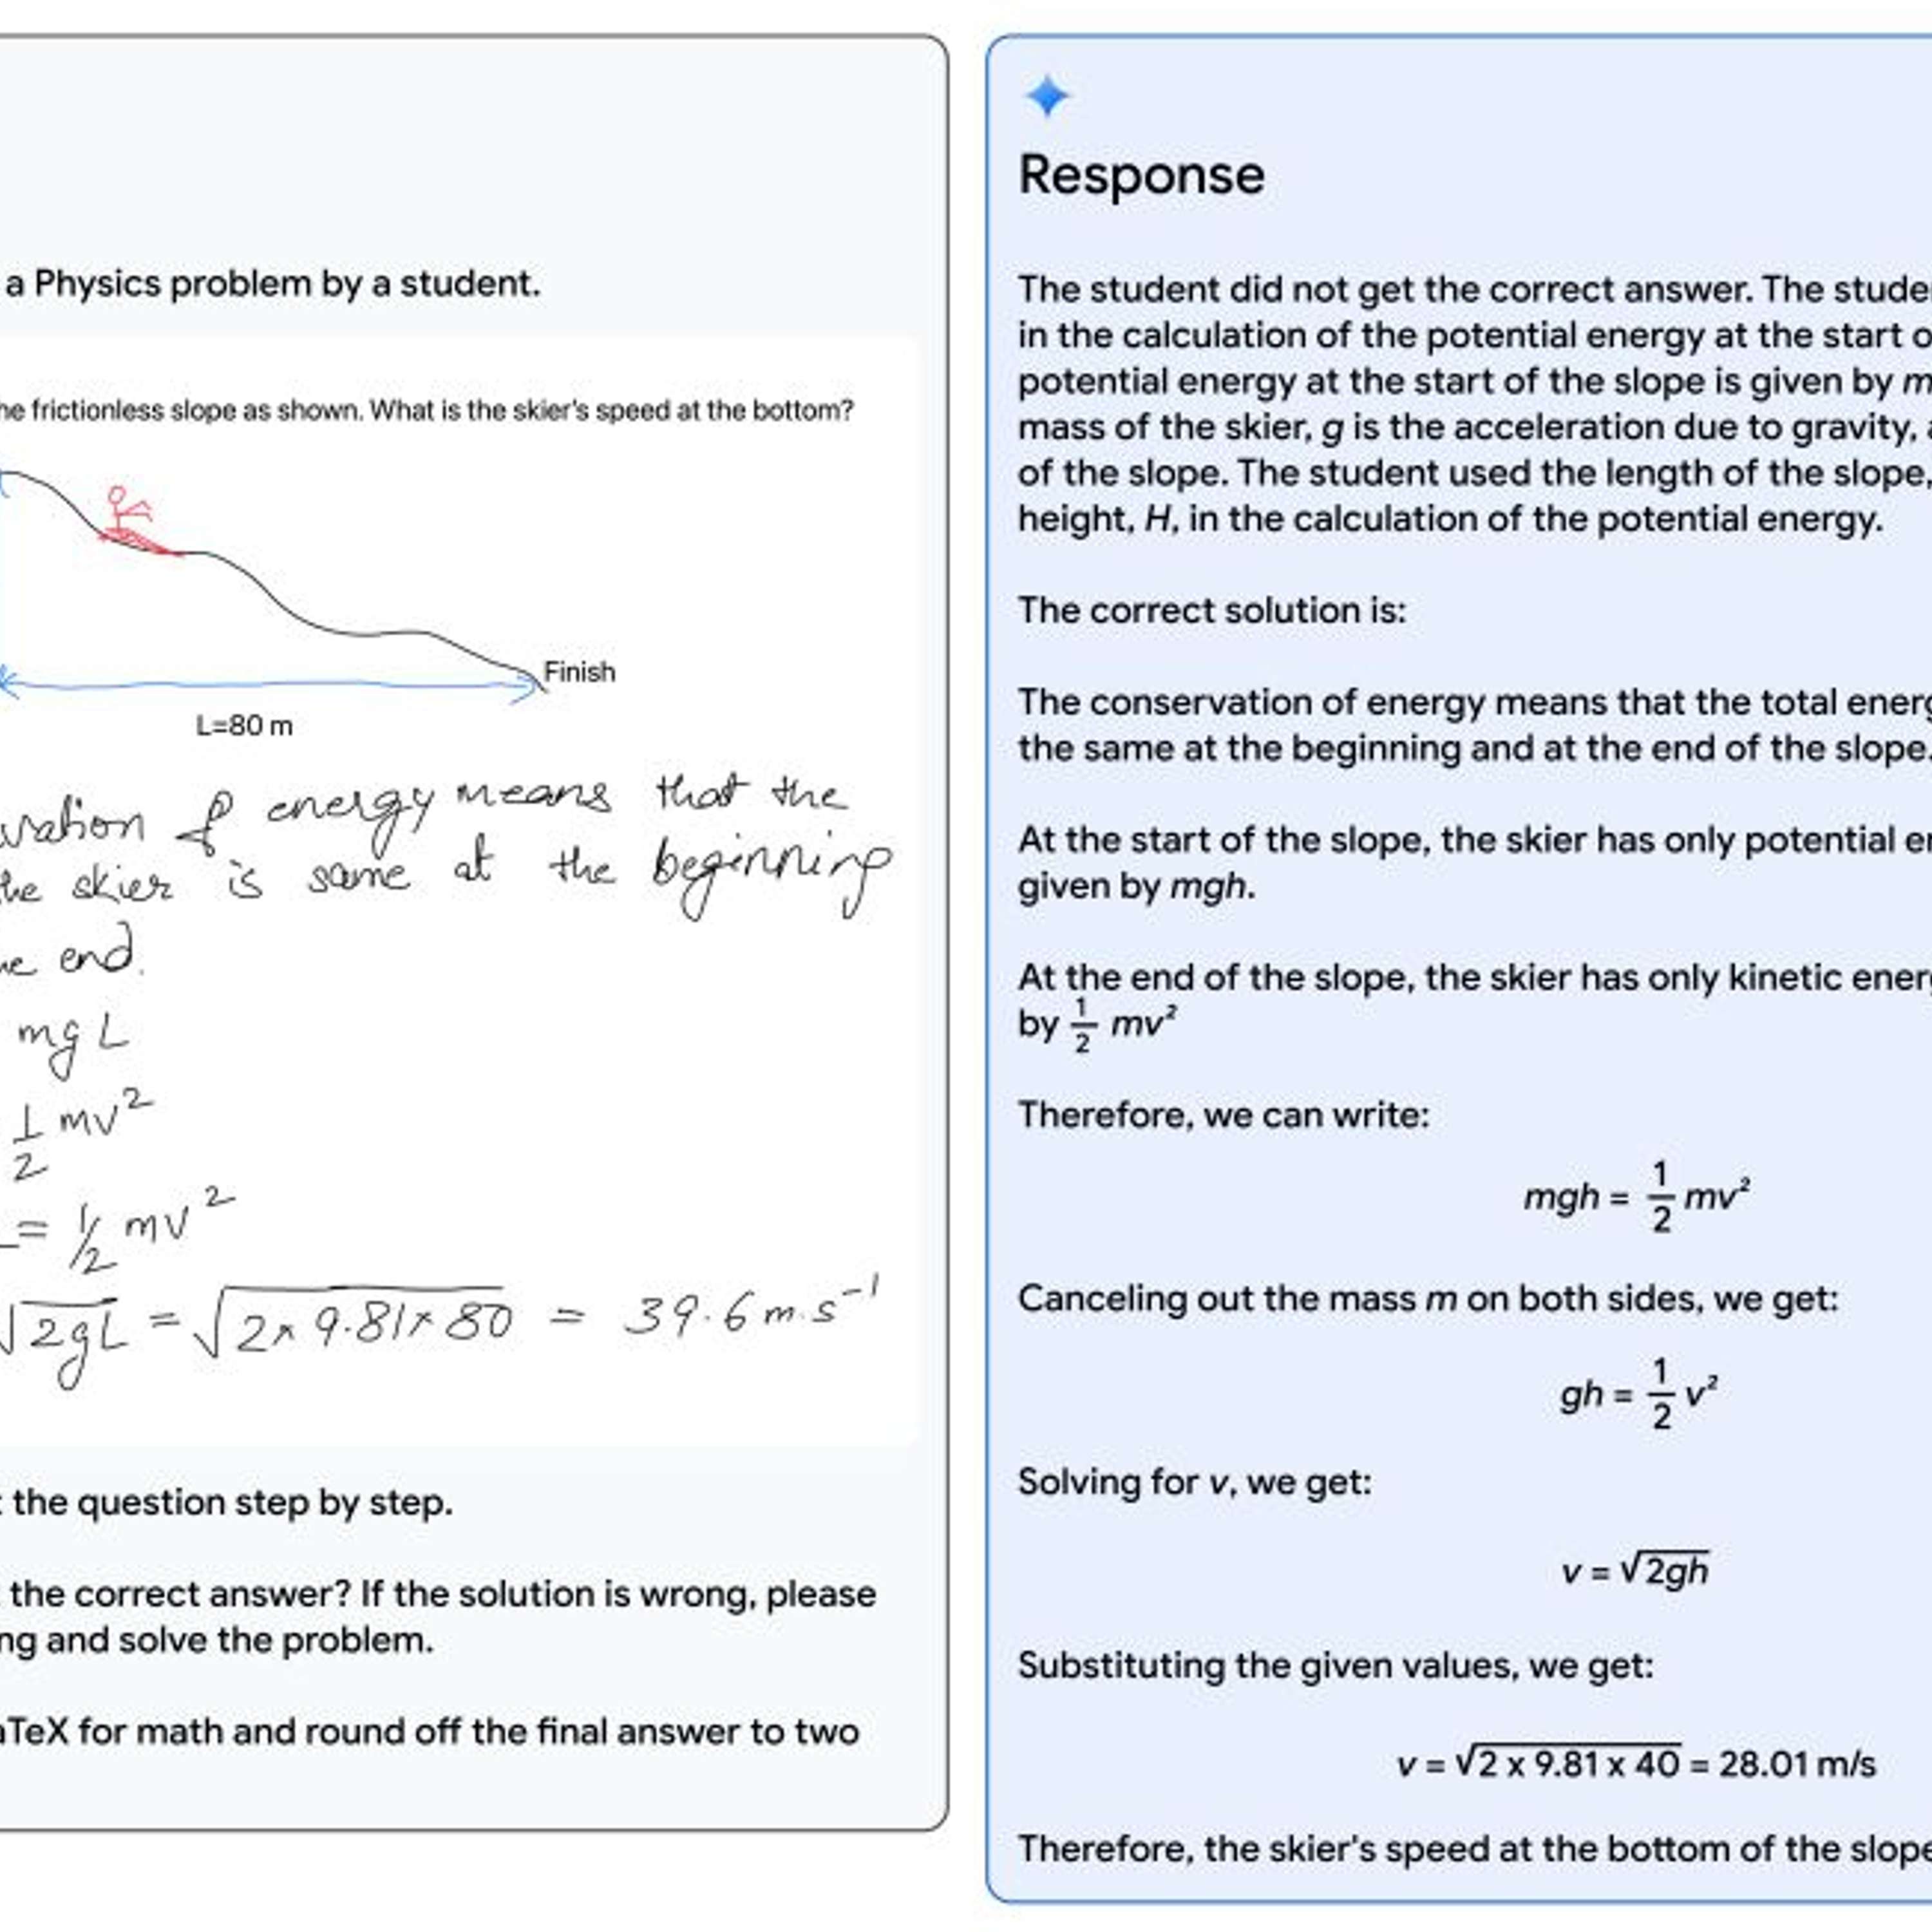 a Physics problem by a student.
he frictionless slope as shown. What is the skier's speed at the bottom?
Finish
L=80 m
vation of energy means that the
the skier is same at the beginning
he end.
mgL
1/2 mv²
= 1/2 mv²
√2gL = √2×9.81×80 = 39.6 m.s⁻¹
the question step by step.
the correct answer? If the solution is wrong, please
ng and solve the problem.
aTeX for math and round off the final answer to two
Response
The student did not get the correct answer. The stude
in the calculation of the potential energy at the start o
potential energy at the start of the slope is given by m
mass of the skier, g is the acceleration due to gravity, a
of the slope. The student used the length of the slope,
height, H, in the calculation of the potential energy.
The correct solution is:
The conservation of energy means that the total energ
the same at the beginning and at the end of the slope.
At the start of the slope, the skier has only potential en
given by mgh.
At the end of the slope, the skier has only kinetic energ
by 1/2 mv²
Therefore, we can write:
mgh = 1/2 mv²
Canceling out the mass m on both sides, we get:
gh = 1/2 v²
Solving for v, we get:
v = √2gh
Substituting the given values, we get:
v = √2 x 9.81 x 40 = 28.01 m/s
Therefore, the skier's speed at the bottom of the slope